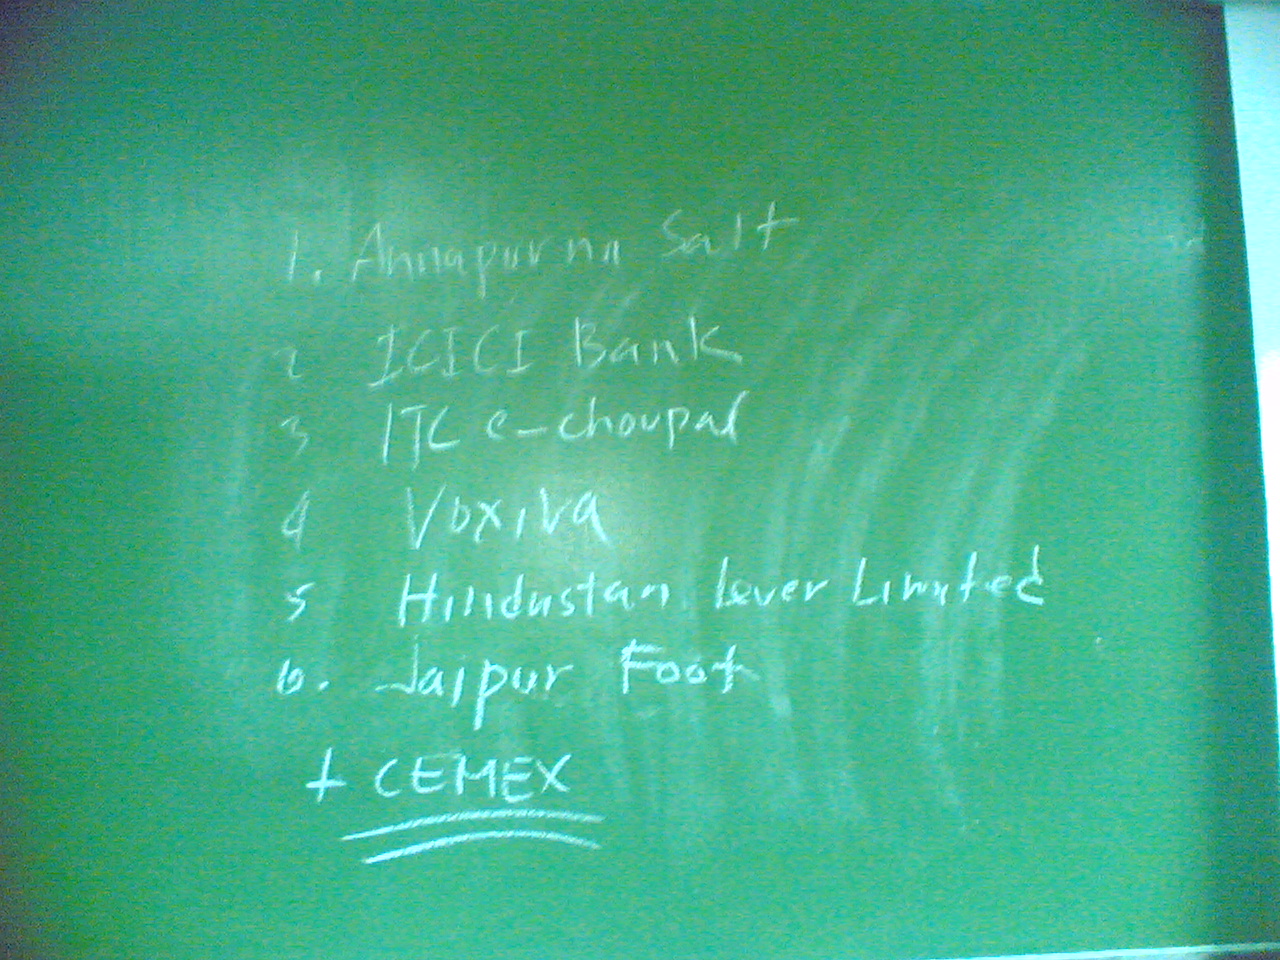 1. Annapurna Salt
2 ICICI Bank
3 ITC e-choupal
4 Voxiva
5 Hindustan Lever Limited
6. Jaipur Foot
+ CEMEX